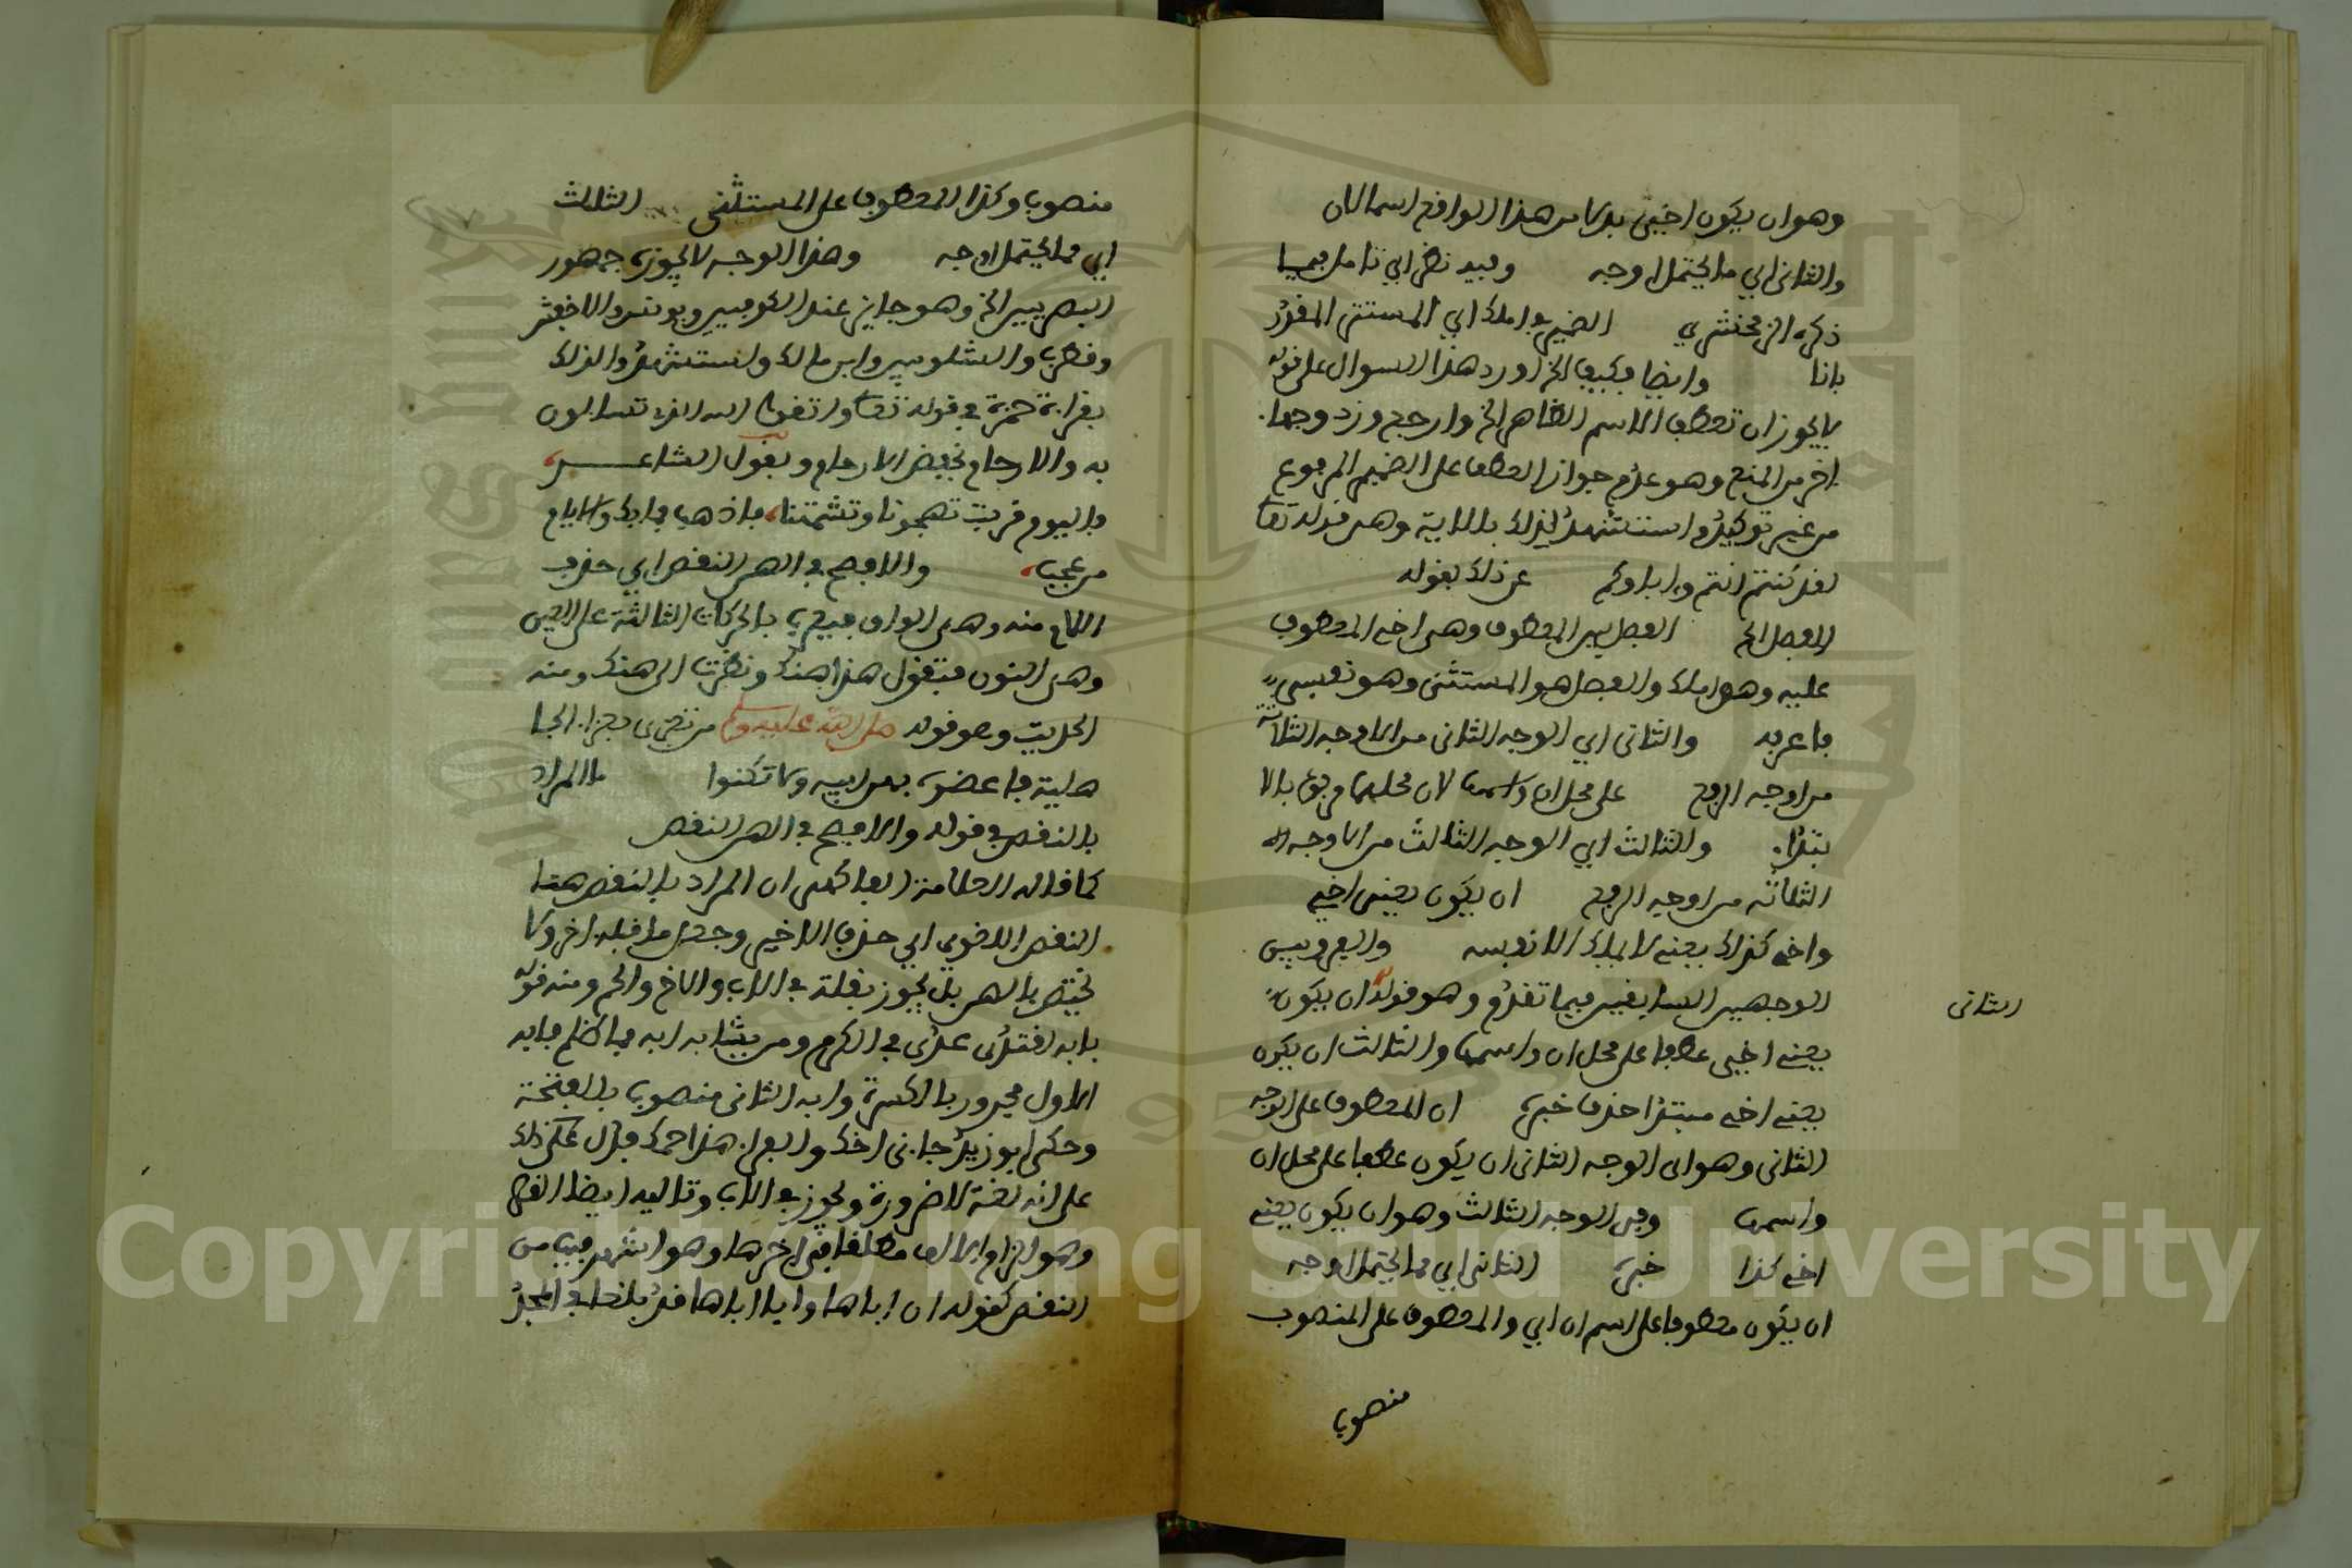 وهو ان يكون اخيى بدلا من هذا الواقع اسما لان
والثانى اي ما يحتمل اوجه وفيه نظر اي تامل فيما
ذكره الزمخشري الضمير في املك اي المستتر المقدر
بانا وايضا فكيف الخ اورد هذا السوال على قوله
لا يجوز ان تعطف الاسم الظاهر الخ وارجح ورد وجها
اخر من المنع وهو عدم جواز العطف على الضمير المرفوع
من غير توكيد واستشهد لذلك بالاية وهى قوله تعا
لقد كنتم انتم واباوكم عن ذلك بقوله
الفصل الخ الفصل بين المعطوف وهى اخى المعطوف
عليه وهو املك والفصل هو المستثنى وهو نفسي
فاعربه والثانى اي الوجه الثانى من الاوجه الثلاثة
من اوجه الرفع على محل ان واسمها لان محلهما مرفوع بالا
بتداء والثالث اي الوجه الثالث من الاوجه
الثلاثة من اوجه الرفع ان يكون يعنى اخي
واخى كذلك يعنى لا يملك الا نفسه والفرق بين
الوجهين السابقين فيما تقدم وهو قوله ان يكون
الثانى
يعنى اخى عطفا على محل ان واسمها والثالث ان يكون
يعنى اخى مبتدا حذف خبره ان المعطوف على الوجه
الثانى وهو اى الوجه الثانى ان يكون عطفا على محل ان
واسمها وفى الوجه الثالث وهو ان يكون يعنى
اخى كذا خبره الثانى اي مما يحتمل اوجه
ان يكون معطوفا على اسم ان اي والمعطوف على المنصوب
منصوب
منصوب وكذا المعطوف على المستثنى الثالث
اي مما يحتمل اوجه وهذا الوجه لا يجوزه جمهور
البصريين الخ وهو جايز عند الكوفيين ويونس والاخفش
وقطرب والشلوبين وابن مالك واستشهدوا لذلك
بقراءة حمزة في قوله تعا واتقوا الله الذى تسالون
به والارحام بخفض الارحام وبقول الشاعر
فاليوم قربت تهجونا وتشتمنا، فاذهب فما بك والايام
من عجب، والافصح في الهن النقص اي حذف
اللام منه وهى الواو فيعرب بالحركات الثلاثة على العين
وهى النون فتقول هذا هنك ونظرت الى هنك ومنه
الحديث وهو قوله صلى الله عليه وسلم من تعزى بعزاء الجا
هلية فاعضوه بهن ابيه ولا تكنوا ما المراد
بالنقص في قوله والافصح في الهن النقص
كما قاله العلامة الفاكهى ان المراد بالنقص هنا
النقص اللغوي اي حذف الاخير وجعل ما قبله اخر ولا
يختص بالهن بل يجوز بقلة في الاب والاخ والحم ومنه قوله
بابه اقتدى عدى في الكرم ومن يشابه ابه فما ظلم فابه
الاول مجرور بالكسرة وابه الثانى منصوب بالفتحة
وحكى ابو زيد جانى اخك والفراء هذا حمك
على انه لغة لا ضرورة ويجوز في الاب وتالييه ايضا القصر
وهو الزام الالف مطلقا في اخرها وهو اشهر فيها من
النقص كقوله ان اباها وابا اباها قد بلغا في المجد
Copyright © King Saud University